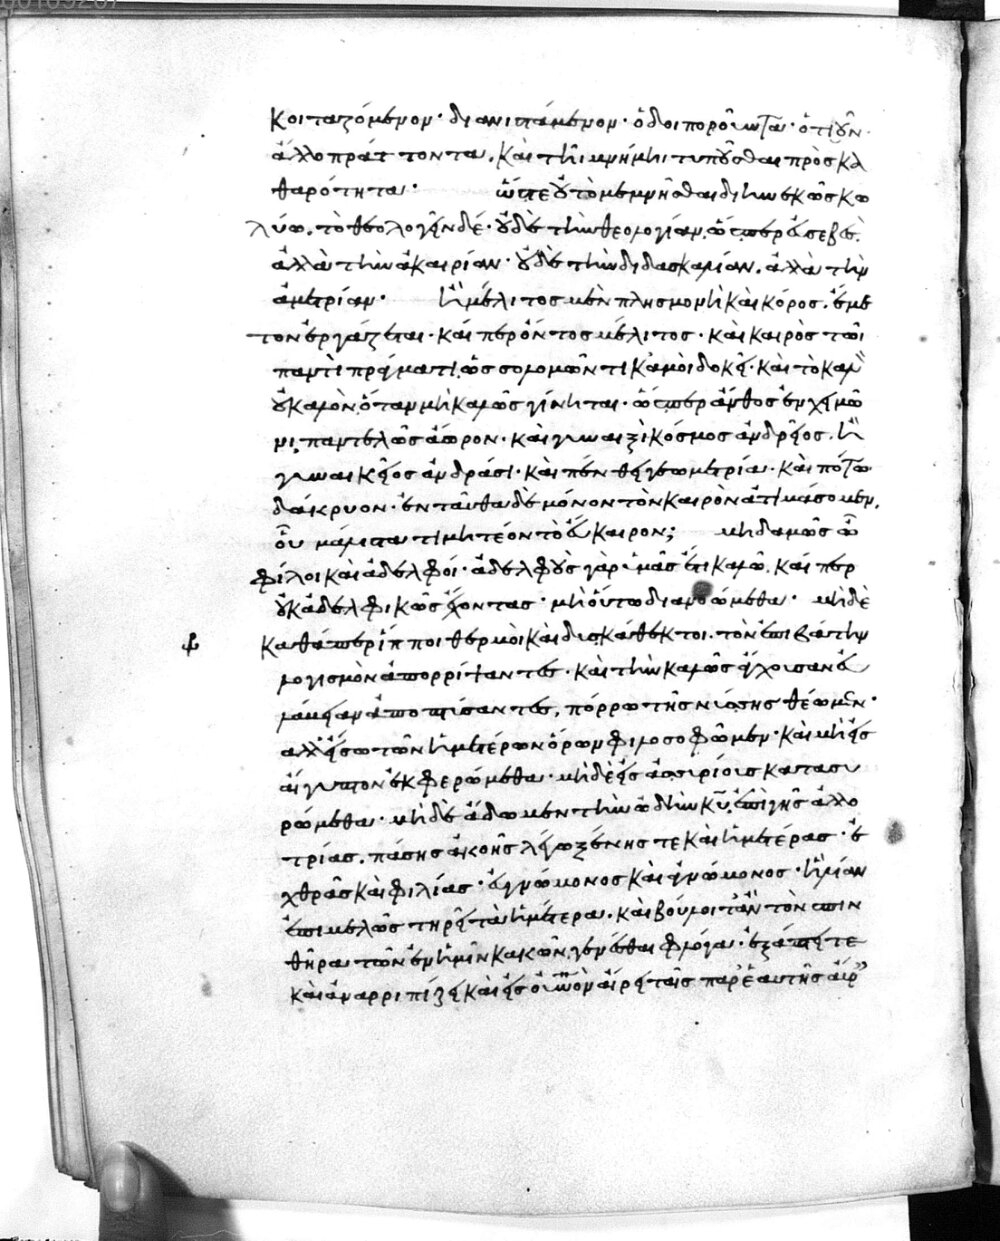 κοιταζόμενον· διανιστάμενον· ὁδοιποροῦντα· ὁτιοῦν
ἄλλο πράττοντα. καὶ τῆι μνήμηι τυποῦσθαι πρὸς κα
θαρότητα· ὥστε οὐ τὸ μεμνῆσθαι διηνεκῶς κω
λύω. τὸ θεολογεῖν δέ· οὐδὲ τὴν θεολογίαν, ὥσπερ ἀσεβὲς.
ἀλλὰ τὴν ἀκαιρίαν· οὐδὲ τὴν διδασκαλίαν. ἀλλὰ τὴν
ἀμετρίαν· ἢ μέλιτος μὲν πλησμονὴ καὶ κόρος. ἔμε
τον ἐργάζεται· καίπερ ὄντος μέλιτος· καὶ καιρὸς τῶι
παντὶ πράγματι, ὡς σολομῶντι κἀμοὶ δοκεῖ· καὶ τὸ καλὸν
οὐ καλὸν ὅταν μὴ καλῶς γίνηται· ὥσπερ ἄνθος ἐν χειμῶ
νι παντελῶς ἄωρον· καὶ γυναιξὶ κόσμος ἀνδρεῖος. ἢ
γυναικεῖος ἀνδράσι· καὶ πένθει γεωμετρία· καὶ πότω
δάκρυον· ἐνταῦθα δὲ μόνον τὸν καιρὸν ἀτιμάσομεν,
οὗ μάλιστα τιμητέον τὸ εὔκαιρον; μηδαμῶς ὦ
φίλοι καὶ ἀδελφοί· ἀδελφοὺς γὰρ ὑμᾶς ἔτι καλῶ. καίπερ
οὐκ ἀδελφικῶς ἔχοντας· μὴ οὕτω διανοώμεθα· μηδὲ
καθάπερ ἵπποι θερμοὶ καὶ δυσκάθεκτοι. τὸν ἐπιβάτην
λογισμὸν ἀπορρίψαντες· καὶ τὴν καλῶς ἄγχουσαν εὐ
λάβειαν ἀποπτύσαντες, πόρρω τῆς νύσσης θέωμεν·
ἀλλ' εἴσω τῶν ἡμετέρων ὅρων φιλοσοφῶμεν· καὶ μὴ εἰς
αἴγυπτον ἐκφερώμεθα· μηδὲ εἰς ἀσσυρίους κατασυ
ρώμεθα· μηδὲ ἄδωμεν τὴν ὠδὴν κυ, ἐπὶ γῆς ἀλλο
τρίας. πάσης ἀκοῆς λέγω ξένης τε καὶ ἡμετέρας· ἐ
χθρᾶς καὶ φιλίας· εὐγνώμονος καὶ ἀγνώμονος· ἣ λίαν
ἐπιμελῶς τηρεῖ τὰ ἡμέτερα. καὶ βούλοιτ' ἂν τὸν σπιν
θῆρα τῶν ἐν ἡμῖν κακῶν, γενέσθαι φλόγα· ἐξάπτει τε
καὶ ἀναρριπίζει καὶ εἰς οὐνὸν αἴρει ταῖς παρ' ἑαυτῆς αὔρ